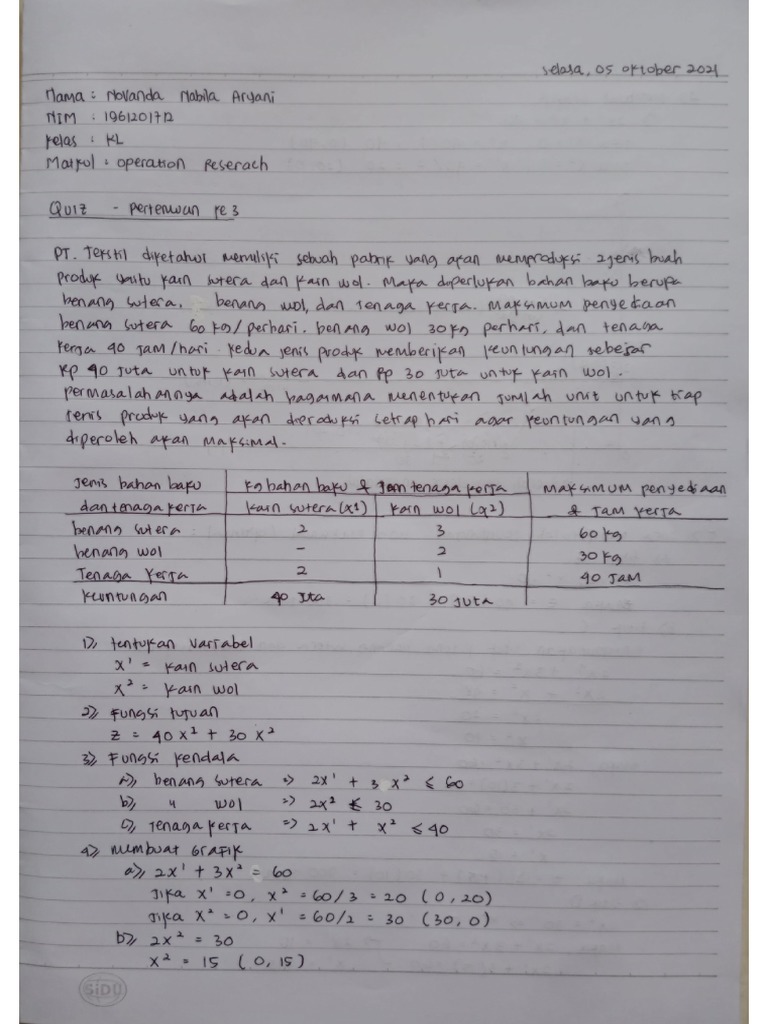 Selasa, 05 Oktober 2021
Nama : Novanda Nabila Aryani
NIM : 1961201712
Kelas : KL
Matkul : Operation Reserach
QUIZ - Pertemuan ke 3
PT. Tekstil diketahui memiliki sebuah pabrik yang akan memproduksi 2 jenis buah
produk yaitu kain sutera dan kain wol. Maka diperlukan bahan baku berupa
benang sutera, benang wol, dan tenaga kerja. Maksimum penyediaan
benang sutera 60 kg/perhari, benang wol 30 kg perhari, dan tenaga
kerja 40 jam/hari. Kedua jenis produk memberikan keuntungan sebesar
Rp 40 juta untuk kain sutera dan Rp 30 juta untuk kain wol.
permasalahannya adalah bagaimana menentukan jumlah unit untuk tiap
jenis produk yang akan diproduksi setiap hari agar keuntungan yang
diperoleh akan maksimal.
Jenis bahan baku | kg bahan baku & Jam tenaga kerja | Maksimum penyediaan
dan tenaga kerja | kain sutera (x1) | kain wol (x2) | & Jam kerja
benang sutera | 2 | 3 | 60 kg
benang wol | - | 2 | 30 kg
Tenaga kerja | 2 | 1 | 40 Jam
keuntungan | 40 Jta | 30 Juta
1) tentukan variabel
x¹ = kain sutera
x² = kain wol
2) Fungsi tujuan
z = 40 x² + 30 x²
3) Fungsi kendala
a) benang sutera => 2x¹ + 3 x² ≤ 60
b) " wol => 2x² ≤ 30
c) tenaga kerja => 2x¹ + x² ≤ 40
4) membuat grafik
a) 2x¹ + 3x² = 60
Jika x¹ = 0, x² = 60/3 = 20 (0, 20)
Jika x² = 0, x¹ = 60/2 = 30 (30, 0)
b) 2x² = 30
x² = 15 (0, 15)
SiDU